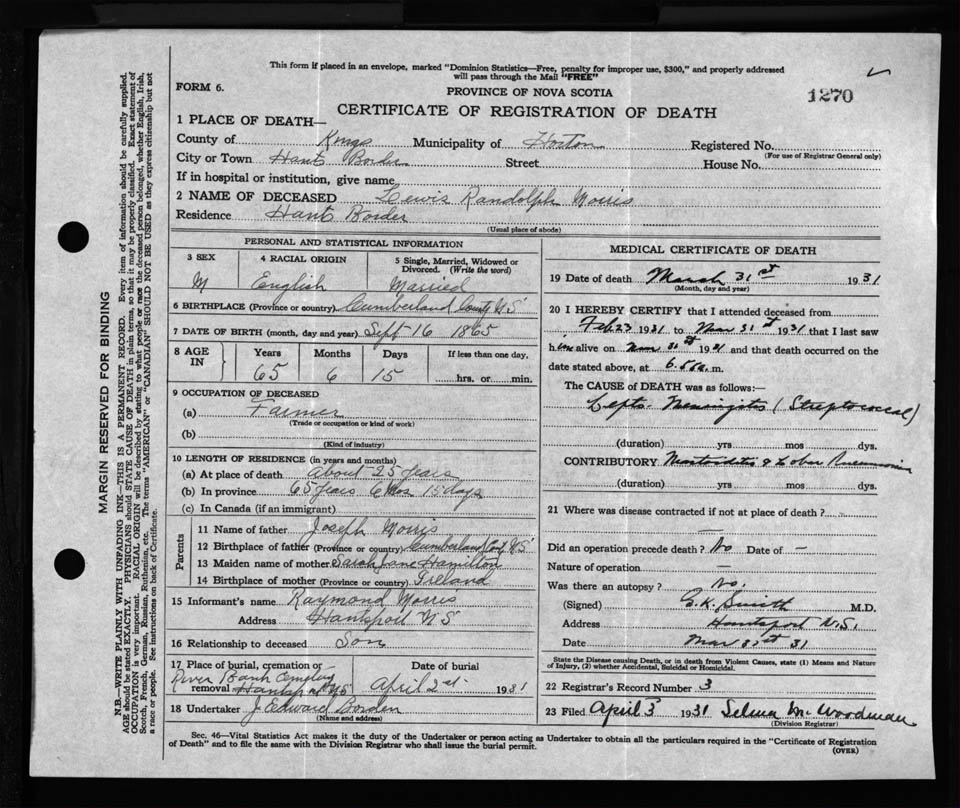 This form if placed in an envelope, marked "Dominion Statistics—Free, penalty for improper use, $300," and properly addressed
will pass through the Mail "FREE"
FORM 6.
PROVINCE OF NOVA SCOTIA
1270
CERTIFICATE OF REGISTRATION OF DEATH
1 PLACE OF DEATH—
County of Kings Municipality of Horton Registered No.
(For use of Registrar General only)
City or Town Hants Border Street House No.
If in hospital or institution, give name
2 NAME OF DECEASED Lewis Randolph Morris
Residence Hants Border
(Usual place of abode)
PERSONAL AND STATISTICAL INFORMATION
3 SEX 4 RACIAL ORIGIN 5 Single, Married, Widowed or
Divorced. (Write the word)
M English Married
6 BIRTHPLACE (Province or country) Cumberland County N.S
7 DATE OF BIRTH (month, day and year) Sept 16 1865
8 AGE IN Years Months Days If less than one day,
65 6 15 hrs. or min.
9 OCCUPATION OF DECEASED
(a) Farmer
(Trade or occupation or kind of work)
(b)
(Kind of industry)
10 LENGTH OF RESIDENCE (in years and months)
(a) At place of death About 25 years
(b) In province 65 years 6 mos 15 days
(c) In Canada (if an immigrant)
Parents
11 Name of father Joseph Morris
12 Birthplace of father (Province or country) Cumberland Co N.S
13 Maiden name of mother Sarah Jane Hamilton
14 Birthplace of mother (Province or country) Ireland
15 Informant's name Raymond Morris
Address Hantsport N S
16 Relationship to deceased Son
17 Place of burial, cremation or Date of burial
River Bank Cemetery
removal Hantsport NS April 2nd 1931
18 Undertaker J. Edward Borden
(Name and address)
MEDICAL CERTIFICATE OF DEATH
19 Date of death March 31st 1931
(Month, day and year)
20 I HEREBY CERTIFY that I attended deceased from
Feb 23 1931 to Mar 31st 1931 that I last saw
him alive on Mar 31st 1931 and that death occurred on the
date stated above, at m.
The CAUSE OF DEATH was as follows:—
Septo. Meningitis (Streptococcal)
(duration) yrs mos dys.
CONTRIBUTORY Mastoiditis & Lobar Pneumonia
(duration) yrs mos dys.
21 Where was disease contracted if not at place of death?
—
Did an operation precede death? No Date of —
Nature of operation —
Was there an autopsy? No.
(Signed) S. K. Smith M.D.
Address Hantsport N.S.
Date Mar 31st 31
State the Disease causing Death, or in death from Violent Causes, state (1) Means and Nature
of Injury, (2) whether Accidental, Suicidal or Homicidal.
22 Registrar's Record Number 3
23 Filed April 3 1931 Selma M. Woodman
(Division Registrar)
Sec. 46—Vital Statistics Act makes it the duty of the Undertaker or person acting as Undertaker to obtain all the particulars required in the "Certificate of Registration
of Death" and to file the same with the Division Registrar who shall issue the burial permit.
(OVER)
MARGIN RESERVED FOR BINDING
N.B.—WRITE PLAINLY WITH UNFADING INK—THIS IS A PERMANENT RECORD. Every item of information should be carefully supplied.
AGE should be stated EXACTLY. PHYSICIANS should STATE CAUSE OF DEATH in plain terms, so that it may be properly classified. Exact statement of
OCCUPATION is very important. RACIAL ORIGIN will be described by stating to what people or race the deceased person belonged, whether English, Irish,
Scotch, French, German, Russian, Ruthenian, etc. The terms "AMERICAN" or "CANADIAN" SHOULD NOT BE USED as they express citizenship but not
a race or people. See instructions on back of Certificate.